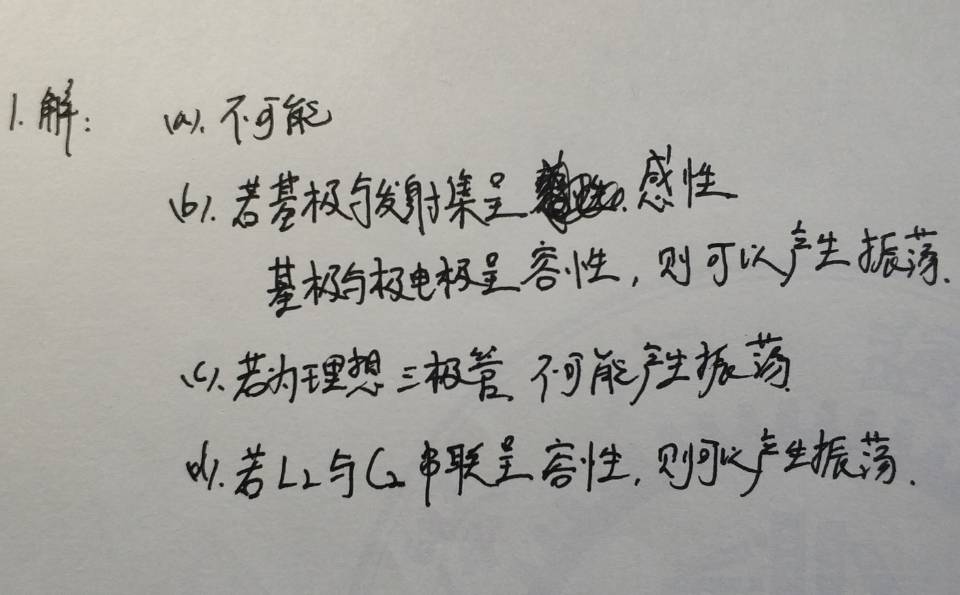 1. 解: (a). 不可能
(b). 若基极与发射集呈感性
基极与极电极呈容性, 则可以产生振荡.
(c). 若为理想三极管 不可能产生振荡.
(d). 若L2与C2串联呈容性, 则可以产生振荡.